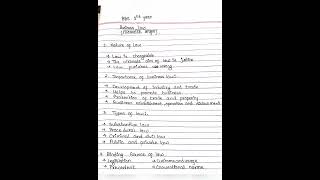 BBS 4th year
Business Law
1. Nature of law
→ Law is changeable
→ The ultimate aim of law is justice
→ Law punishes wrong
2. Importance of business law:
→ Development of industry and trade
→ Helps to promote business
→ Protection of trade and property
→ Business establishment, operation and
3. Types of law:
→ Substantive law
→ Procedural law
→ Criminal and civil law
→ Public and private law
4. Binding Source of law
→ Legislation → Custom and usage
→ Precedent → Conventional norms